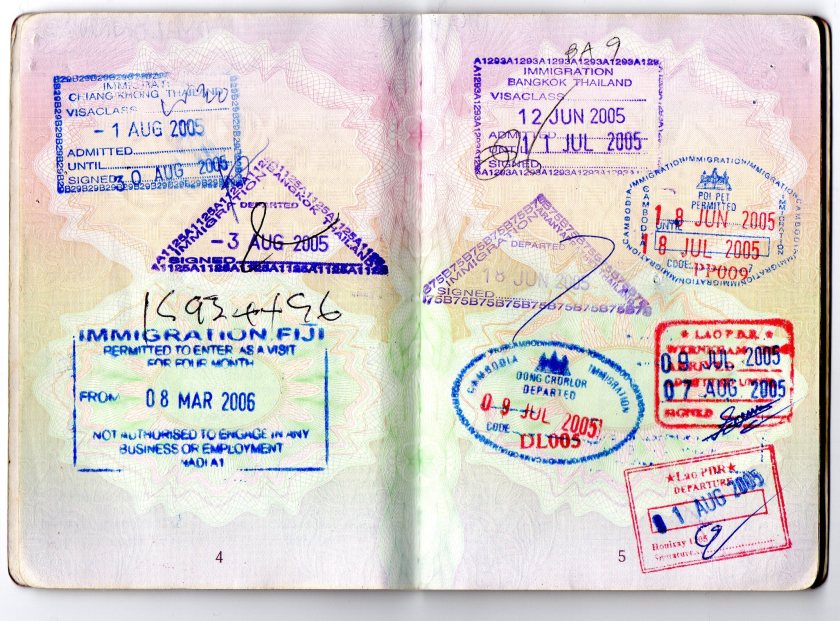 IMMIGRATI
CHIANG KHONG THAILAND
VISACLASS
- 1 AUG 2005
ADMITTED
UNTIL
30 AUG 2005
SIGNED
B29B29B29B29B29B29B29B29B29B29B29
A1125A1125A1125A1125
IMMIGRATION
BANGKOK THAILAND
DEPARTED
- 3 AUG 2005
SIGNED
A1125A1125A1125A1125A1125A1125
IMMIGRATION FIJI
PERMITTED TO ENTER AS A VISIT
FOR FOUR MONTH
FROM 08 MAR 2006
NOT AUTHORISED TO ENGAGE IN ANY
BUSINESS OR EMPLOYMENT
NADI A1
4
A1293A1293A1293A1293A1293A1293A129
IMMIGRATION
BANGKOK THAILAND
VISACLASS
12 JUN 2005
ADMITTED
UNTIL
11 JUL 2005
SIGNED
A1293A1293A1293A1293A1293A1293
IMMIGRATION
DEPARTED
18 JUN 2005
SIGNED
B75B75B75B75B75B75B75B75B75
CAMBODIA IMMIGRATION IMMIGRATION IMMIGRATION
POI PET
PERMITTED
18 JUN 2005
UNTIL
18 JUL 2005
CODE PP009
CAMBODIA IMMIGRATION
DONG CRORLOR
DEPARTED
09 JUL 2005
CODE DL005
★ LAO P.D.R. ★
09 JUL 2005
07 AUG 2005
SIGNED
★ Lao PDR ★
DEPARTURE
01 AUG 2005
Houixay
Signature
5